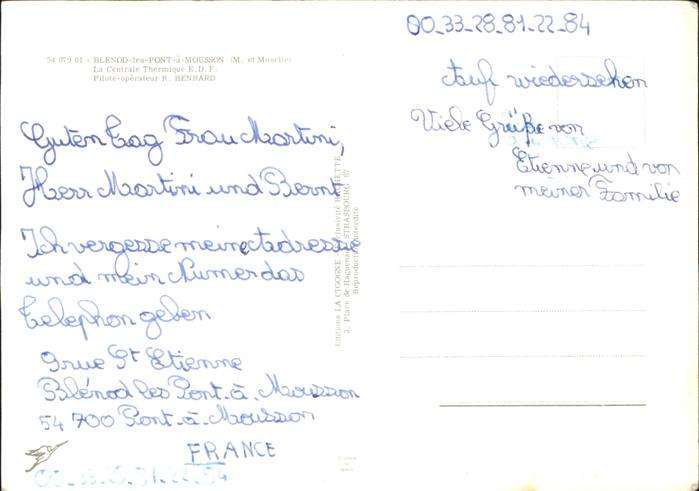 54 079 01 - BLENOD-les-PONT-à-MOUSSON (M. et Moselle)
La Centrale Thermique E.D.F.
Pilote-opérateur R. HENRARD
Guten Tag Frau Martini,
Herr Martini und Bernt
Ich vergesse meine Adresse
und mein Numer das
Telephon geben
9 rue St Etienne
Blénod les Pont-à-Mousson
54 700 Pont-à-Mousson
FRANCE
Editions LA CIGOGNE
2, Place de Haguenau STRASBOURG 67
Reproduction interdite
00_33_28_81_22_84
Auf wiedersehen
Viele Grüße von
Etienne und von
meiner Familie